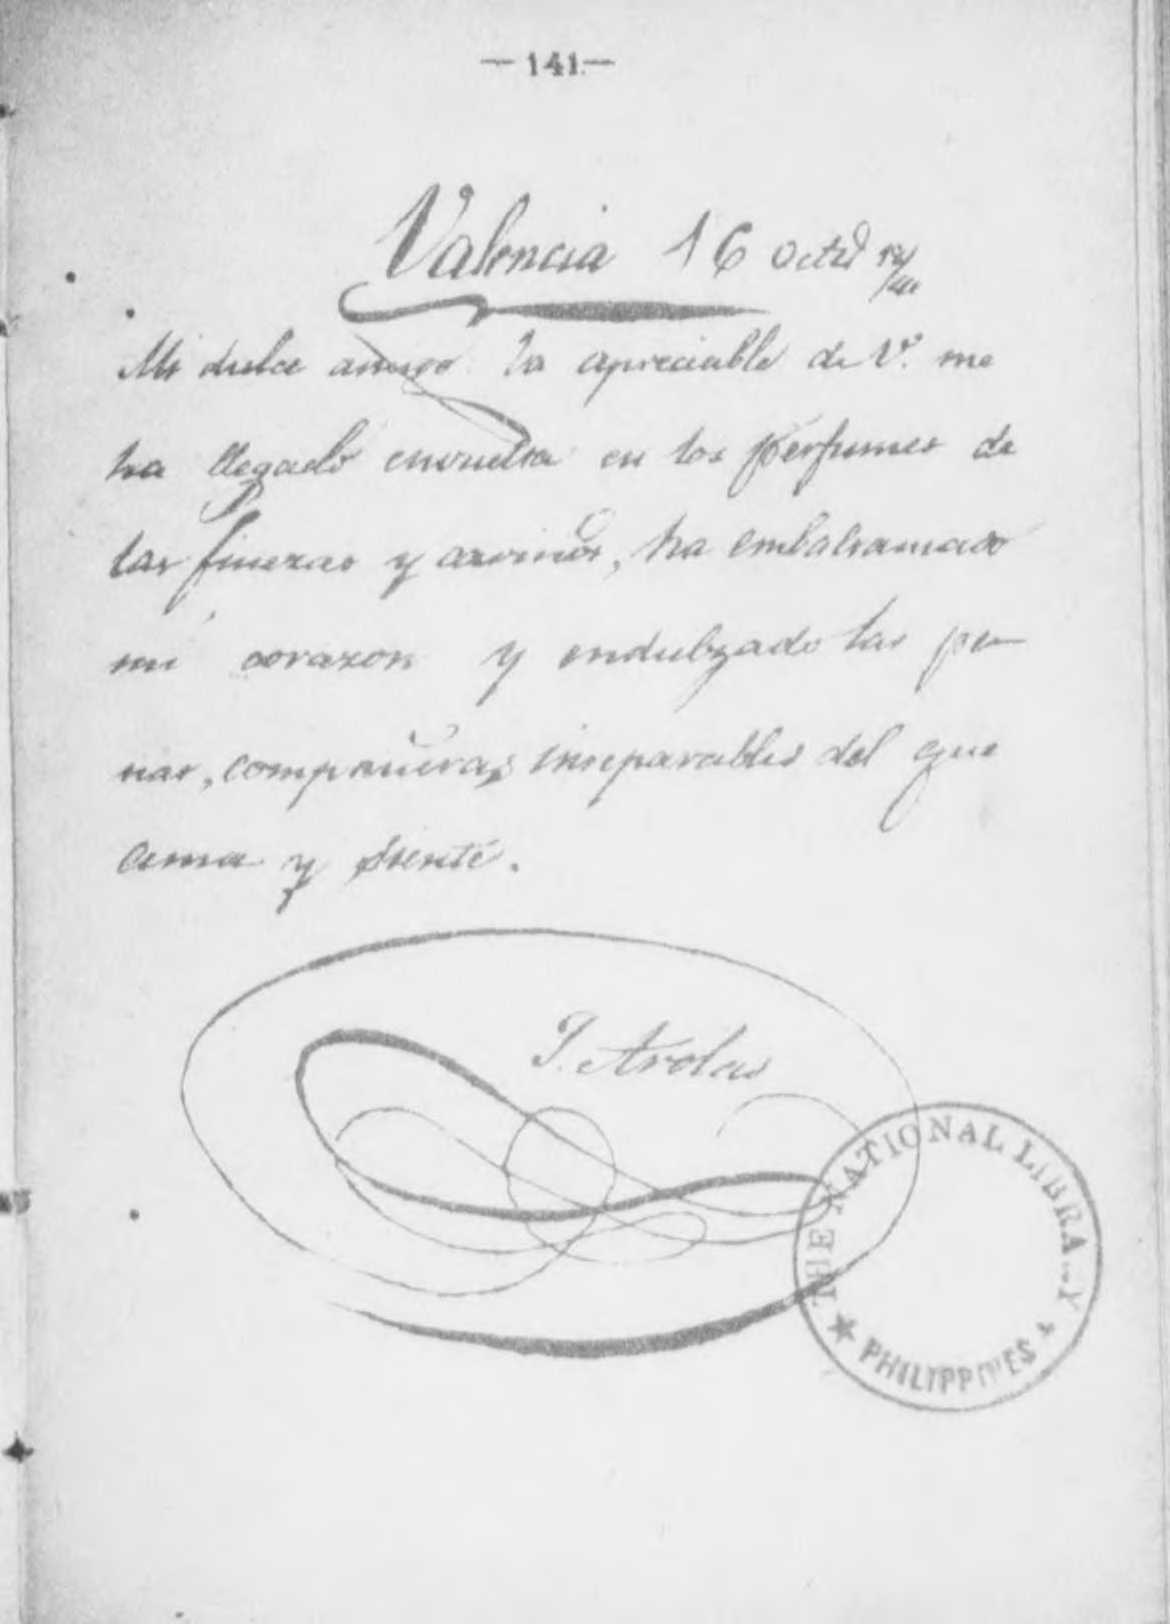 — 141 —
Valencia 16 Octe
Mi dulce amigo la apreciable de V. me
ha llegado envuelta en los perfumes de
las finezas y cariños, ha embalsamado
mi corazon y endulzado las pe—
nas, compañeras inseparables del que
ama y siente.
J. Arolas
THE NATIONAL LIBRARY
★ PHILIPPINES